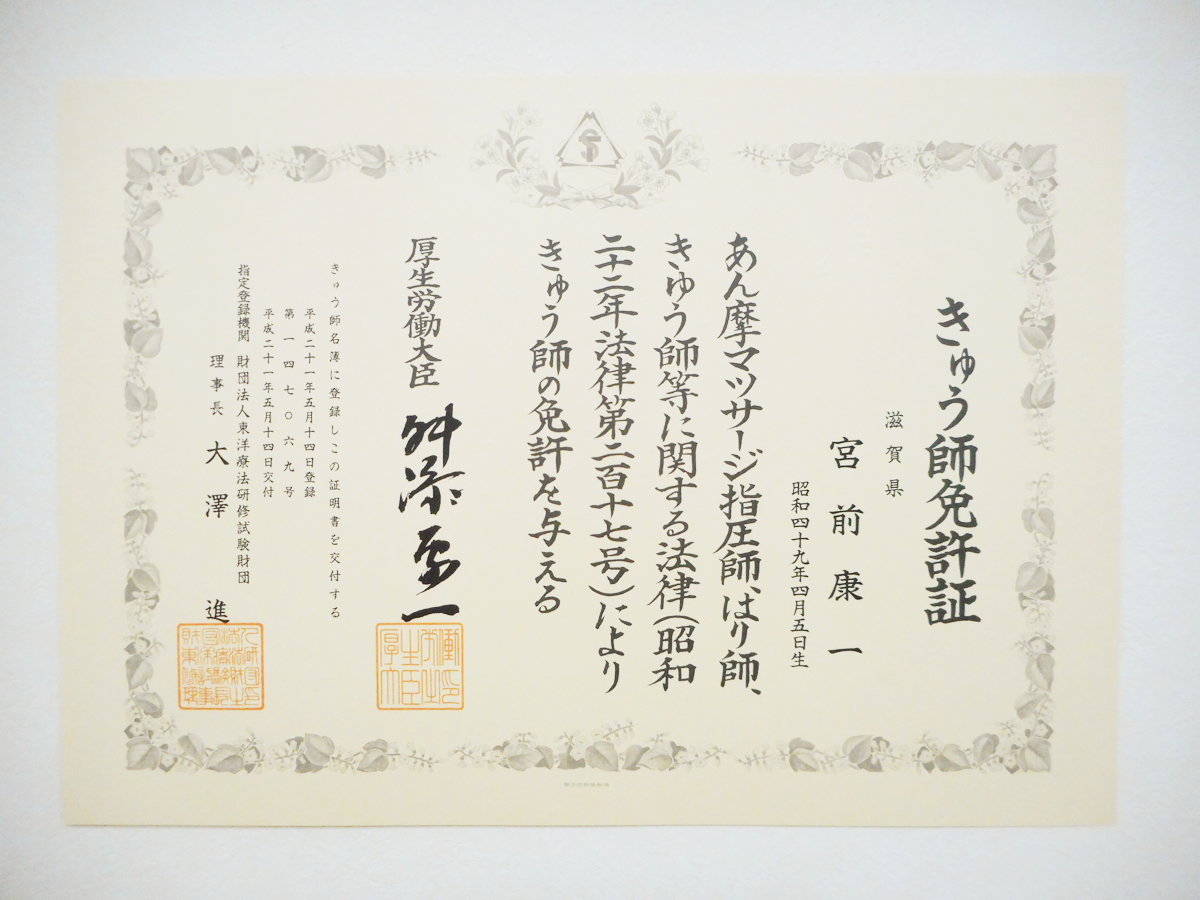 きゅう師免許証
滋賀県
宮前康一
昭和四十九年四月五日生
あん摩マツサージ指圧師、はり師、
きゆう師等に関する法律(昭和
二十二年法律第二百十七号)により
きゅう師の免許を与える
厚生労働大臣 舛添要一
きゅう師名簿に登録しこの証明書を交付する
平成二十一年五月十四日登録
第一四七〇六九号
平成二十一年五月十四日交付
指定登録機関 財団法人東洋療法研修試験財団
理事長 大澤 進